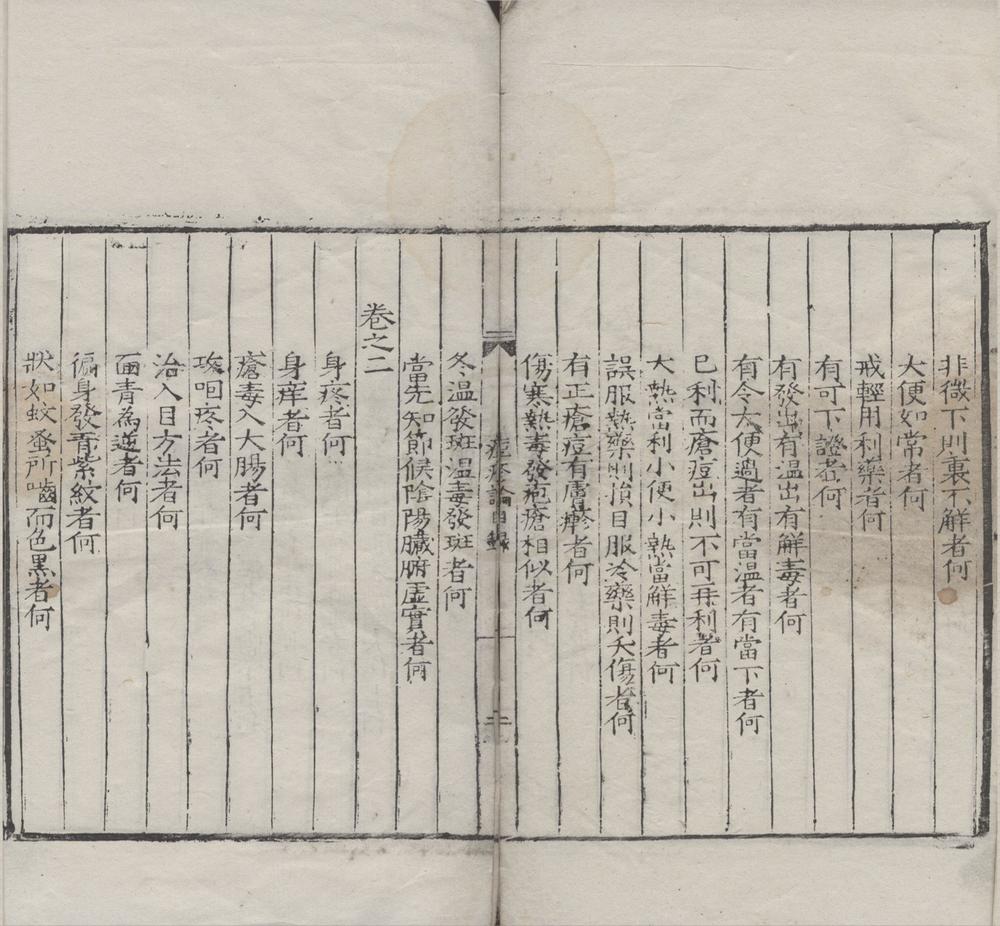 非微下則裏不解者何
大便如常者何
戒輕用利藥者何
有可下證者何
有發出有温出有解毒者何
有令大便過者有當温者有當下者何
已利而瘡痘出則不可再利者何
大熱當利小便小熱當解毒者何
誤服熱藥則損目服冷藥則夭傷者何
有正瘡痘有膚疹者何
傷寒熱毒發疱瘡相似者何
痘疹論目録
二
冬温發斑温毒發斑者何
當先知節候陰陽臓腑虛實者何
卷之二
身疼者何
身痒者何
瘡毒入大腸者何
攻咽疼者何
治入目方法者何
面青為逆者何
徧身發青紫紋者何
狀如蚊蚤所嚙而色黒者何